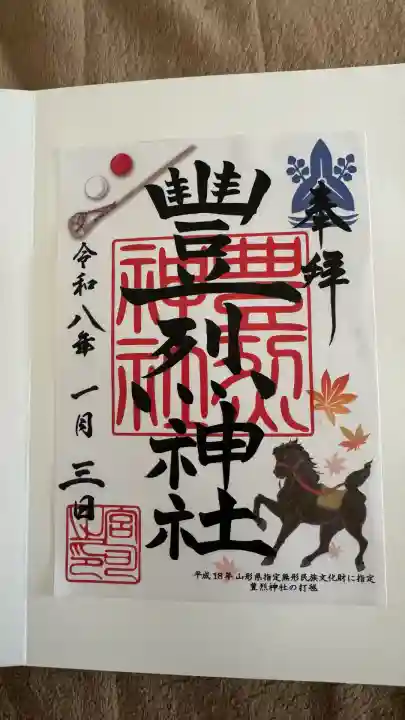 奉拝
豐烈神社
豊烈神社
令和八年 一月 三日
宮司之印
平成18年 山形県指定無形民族文化財に指定
豊烈神社の打毬